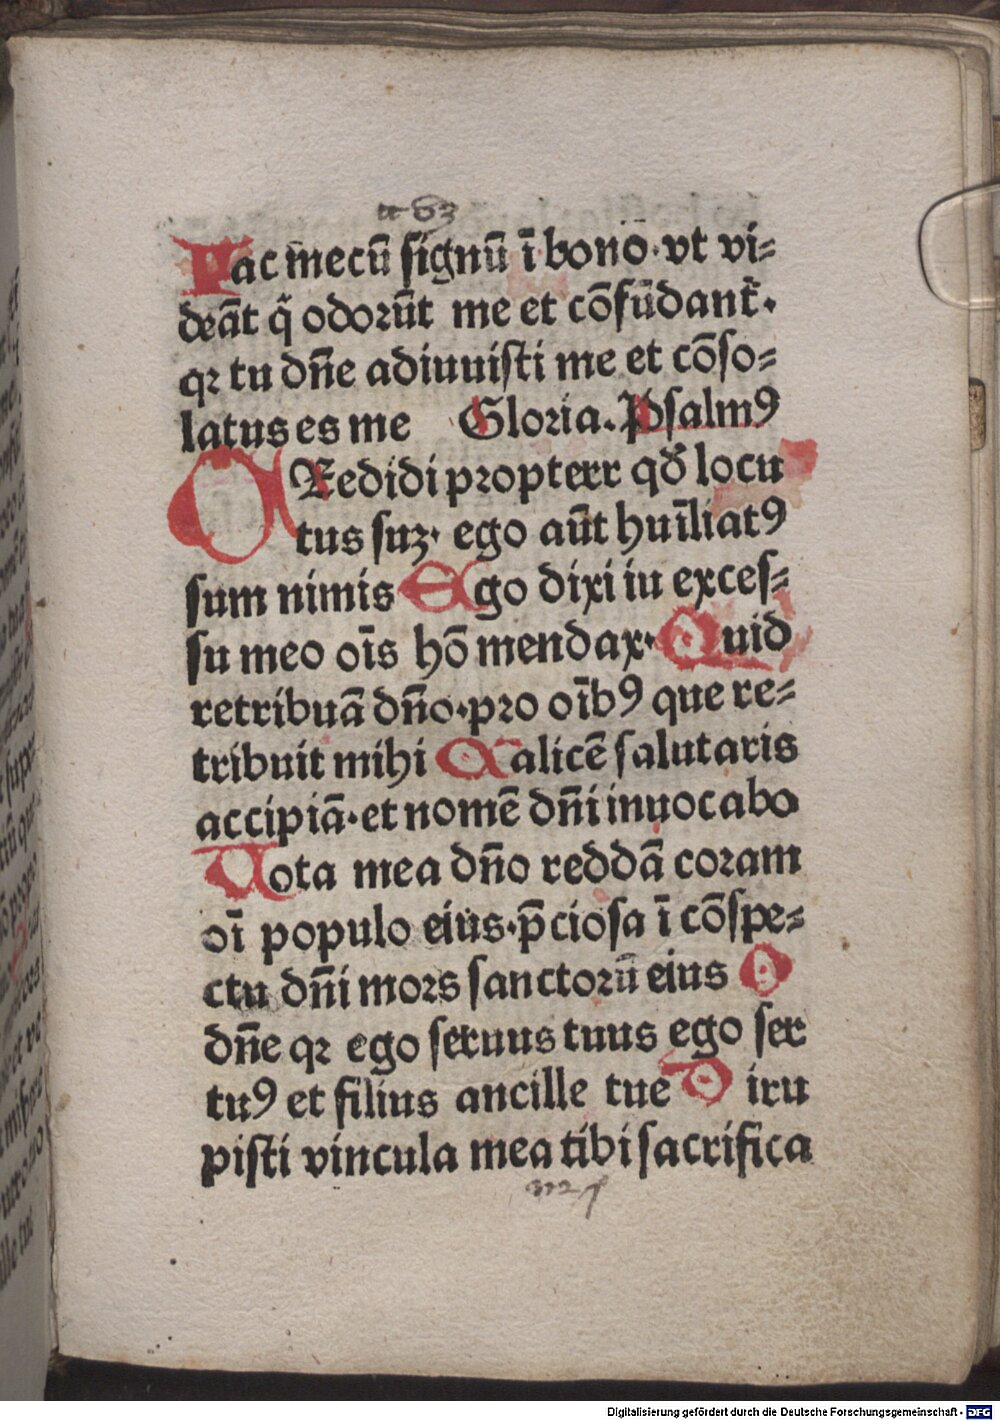 Fac mecū signū ī bono· vt vi⸗
deāt q̄ odorūt me et cōfūdant᷑·
qꝛ tu dn̄e adiuuisti me et cōso⸗
latus es me Gloria. Psalmꝰ
CRedidi propterr qđ locu
tus suꝫ· ego aūt huīliatꝰ
sum nimis Ego dixi iu exces⸗
su meo oīs hō mendax· Quid
retribuā dn̄o·pro oībꝰ que re⸗
tribuit mihi Calicē salutaris
accipiā·et nomē dn̄i inuocabo
Uota mea dn̄o reddā coram
oī populo eius·p̄ciosa ī cōspe⸗
ctu dn̄i mors sanctorū eius O
dn̄e qꝛ ego seruus tuus ego ser
tuꝰ et filius ancille tue Diru
pisti vincula mea tibi sacrifica
Digitalisierung gefördert durch die Deutsche Forschungsgemeinschaft - DFG